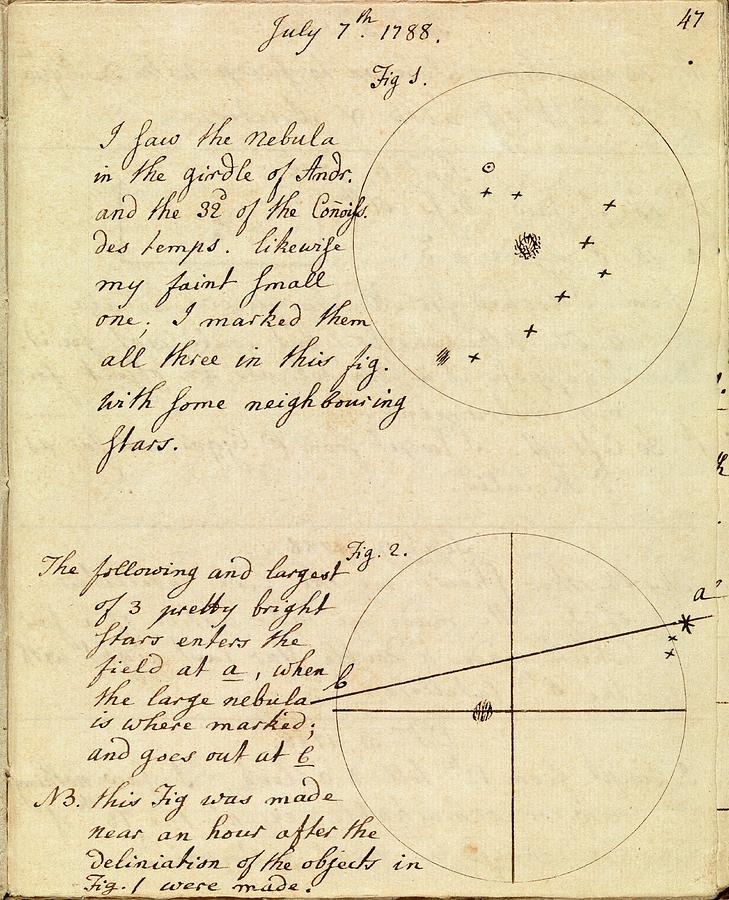 47
July 7th. 1788.
Fig 1.
I saw the nebula
in the girdle of Andr.
and the 32d of the Conoiss.
des temps. likewise
my faint small
one; I marked them
all three in this fig.
with some neighbouring
stars.
Fig. 2.
The following and largest
of 3 pretty bright
stars enters the
field at a, when
the large nebula
is where marked;
and goes out at b
NB. this Fig was made
near an hour after the
deliniation of the objects in
Fig. 1 were made.
a
b